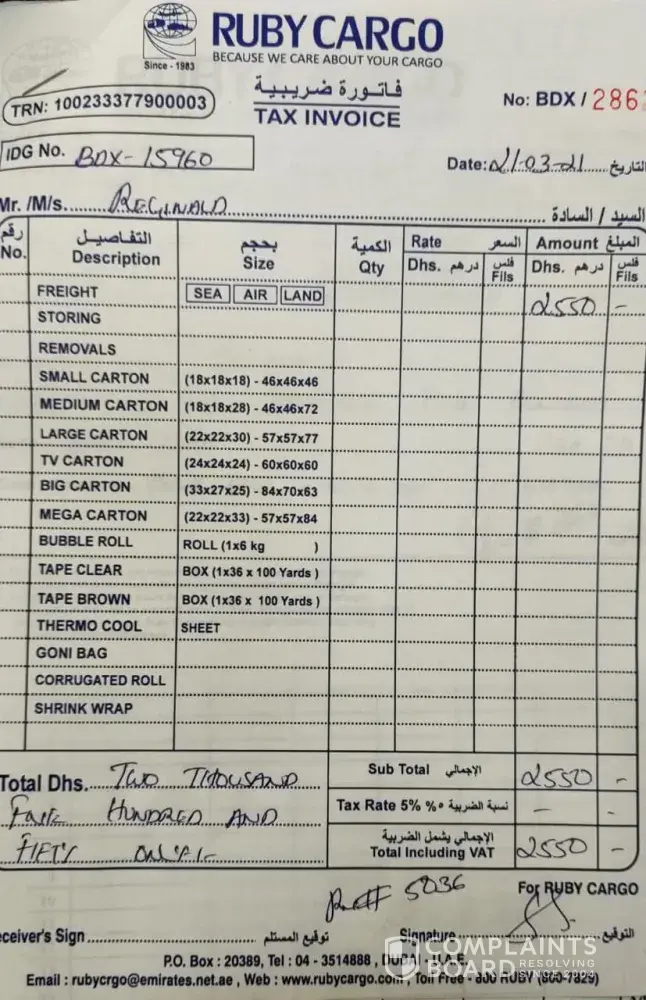 RUBY CARGO
BECAUSE WE CARE ABOUT YOUR CARGO
Since - 1983
فاتورة ضريبية
TAX INVOICE
TRN: 100233377900003
No: BDX / 286
IDG No. BDX-15960
Date: 21-03-21 التاريخ
Mr. /M/s. REGINALD السيد / السادة
رقم No. التفاصيل Description بحجم Size الكمية Qty Rate السعر Amount المبلغ
Dhs. درهم فلس Fils Dhs. درهم فلس Fils
FREIGHT SEA AIR LAND 2550 -
STORING
REMOVALS
SMALL CARTON (18x18x18) - 46x46x46
MEDIUM CARTON (18x18x28) - 46x46x72
LARGE CARTON (22x22x30) - 57x57x77
TV CARTON (24x24x24) - 60x60x60
BIG CARTON (33x27x25) - 84x70x63
MEGA CARTON (22x22x33) - 57x57x84
BUBBLE ROLL ROLL (1x6 kg )
TAPE CLEAR BOX (1x36 x 100 Yards )
TAPE BROWN BOX (1x36 x 100 Yards )
THERMO COOL SHEET
GONI BAG
CORRUGATED ROLL
SHRINK WRAP
Total Dhs. TWO THOUSAND
HUNDRED AND
FIFTY ONLY/-
Sub Total الإجمالي 2550 -
Tax Rate 5% %٥ نسبة الضريبة - -
الإجمالي يشمل الضريبة
Total Including VAT 2550 -
5036
For RUBY CARGO
ceiver's Sign توقيع المستلم Signature التوقيع
P.O. Box : 20389, Tel : 04 - 3514888 , DUBAI - U.A.E.
Email : rubycrgo@emirates.net.ae , Web : www.rubycargo.com, Toll Free - 800 RUBY (800-7829)
COMPLAINTS
BOARD RESOLVING
SINCE 2004